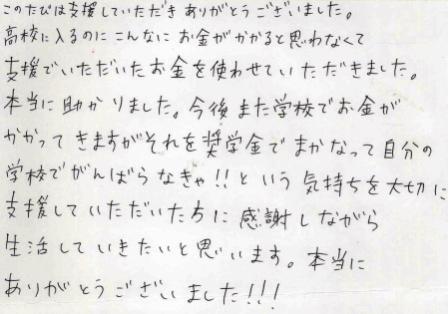 このたびは支援していただきありがとうございました。
高校に入るのにこんなにお金がかかると思わなくて
支援でいただいたお金を使わせていただきました。
本当に助かりました。今後また学校でお金が
かかってきますがそれを奨学金でまかなって自分の
学校でがんばらなきゃ!!という気持ちを大切に
支援していただいた方に感謝しながら
生活していきたいと思います。本当に
ありがとうございました!!!